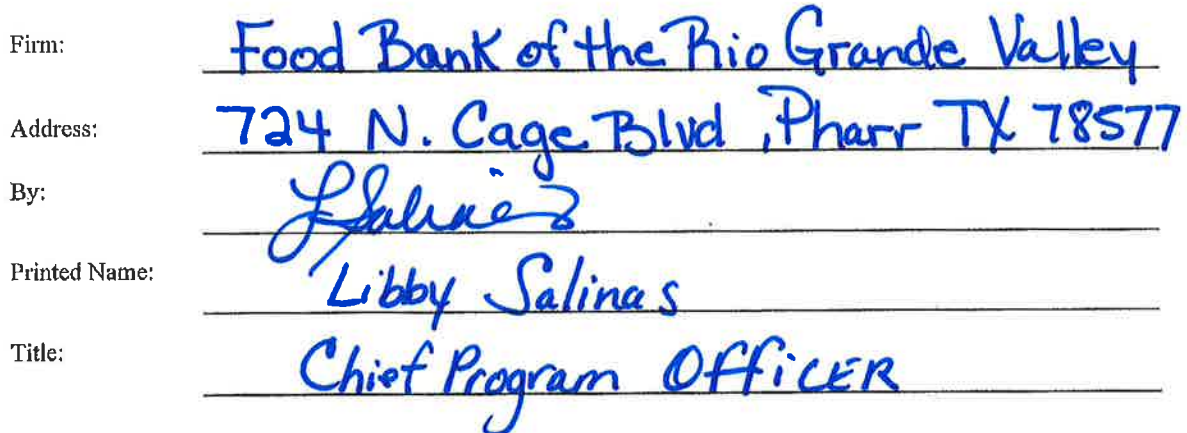 Firm: Food Bank of the Rio Grande Valley
Address: 724 N. Cage Blvd, Pharr TX 78577
By: L Salinas
Printed Name: Libby Salinas
Title: Chief Program OfficER